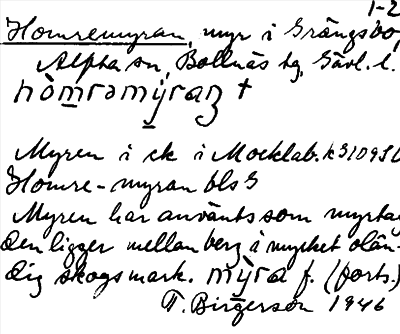 1-2
Homremyran, myr i Grängsbo,
Alfta sn, Bollnäs tg, Gävl. l.
hòmrəmỳraɳ †
Myren i ek i Mocklab.
Homre-myran bls
Myren har använts som myrtag
Den ligger mellan berg i mycket olän-
dig skogsmark. mỳra f. (forts.)
T. Birgerson 1946